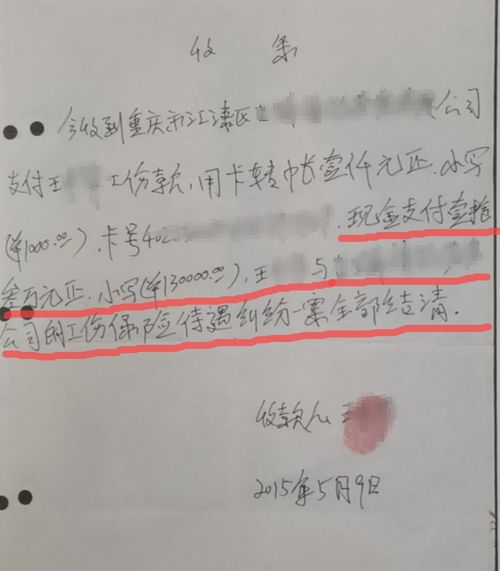 收 条
今收到重庆市江津区 公司
支付王 工伤款,用卡转帐壹仟元正.小写
(￥1000.00).卡号402 .现金支付壹拾
叁万元正.小写(￥130000.00),王 与
公司的工伤保险待遇纠纷一案全部结清.
收款人 王
2015年5月9日